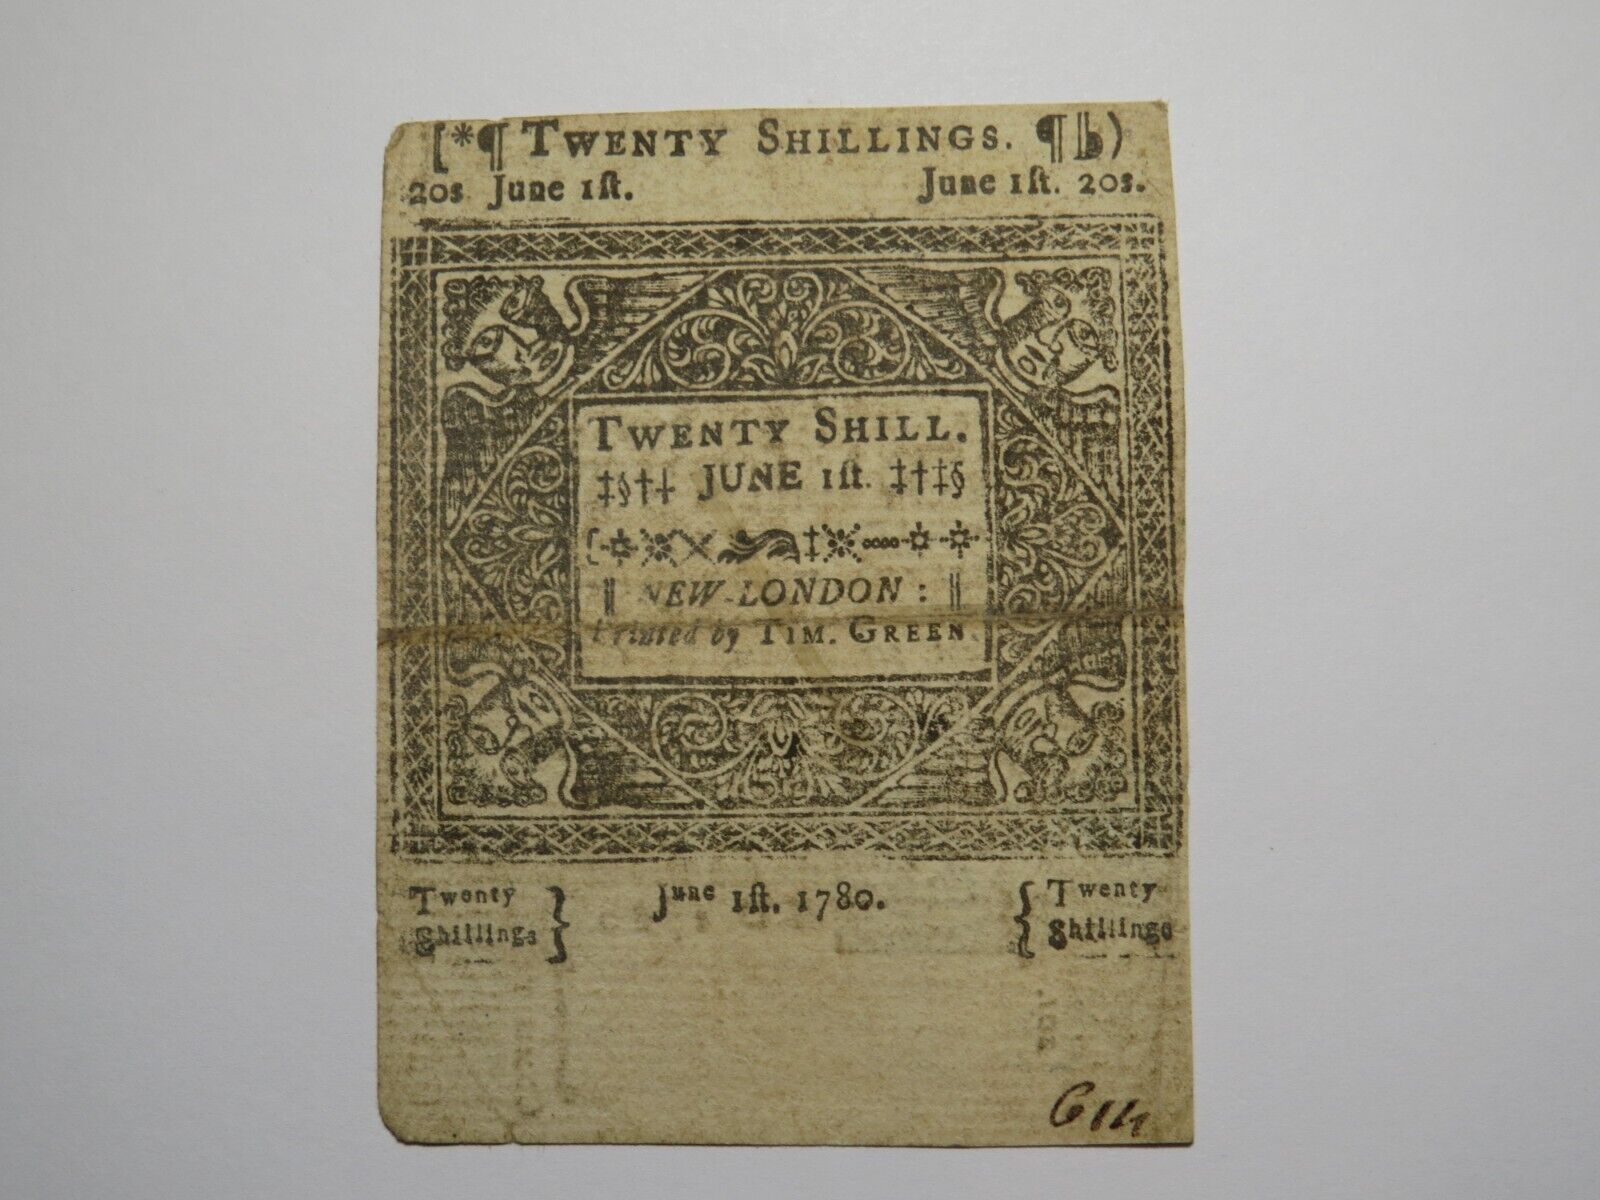 [*¶ TWENTY SHILLINGS. ¶♭)
20s June 1ſt. June 1ſt. 20s.
TWENTY SHILL.
‡§†‡ JUNE 1ſt. ‡†‡§
‖ NEW-LONDON : ‖
Printed by TIM. GREEN.
Twenty Shillings } June 1ſt. 1780. { Twenty Shillings